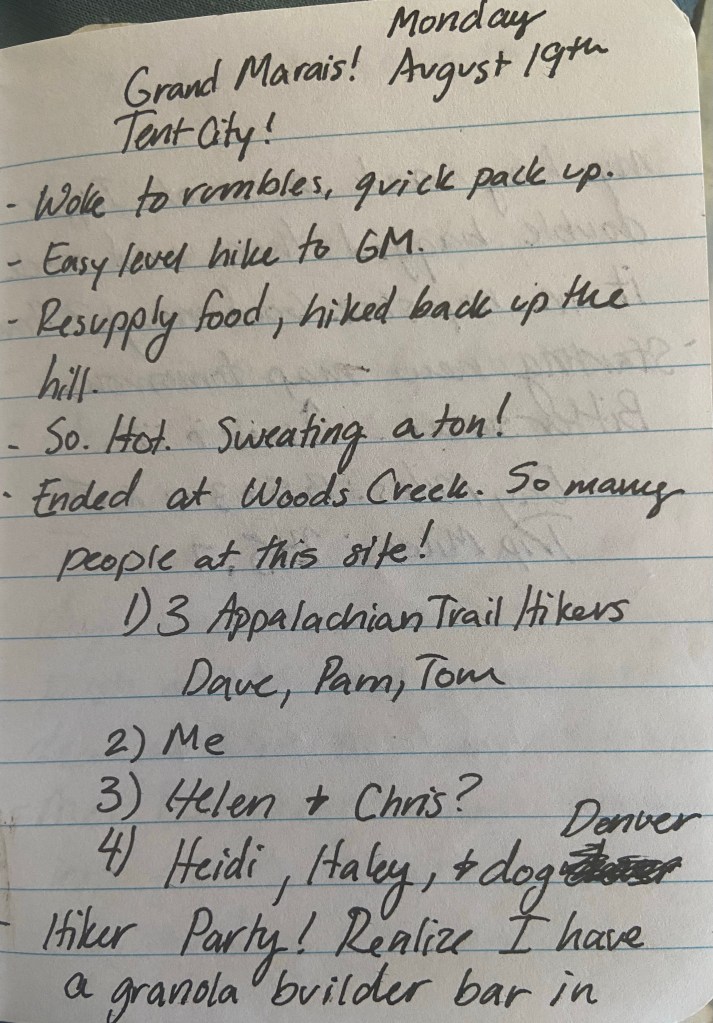 Monday
Grand Marais! August 19th
Tent City!
- Woke to rumbles, quick pack up.
- Easy level hike to GM.
- Resupply food, hiked back up the
hill.
- So. Hot. Sweating a ton!
- Ended at Woods Creek. So many
people at this site!
1) 3 Appalachian Trail Hikers
Dave, Pam, Tom
2) Me
3) Helen + Chris?
Denver
4) Heidi, Haley, + dog
- Hiker Party! Realize I have
a granola builder bar in